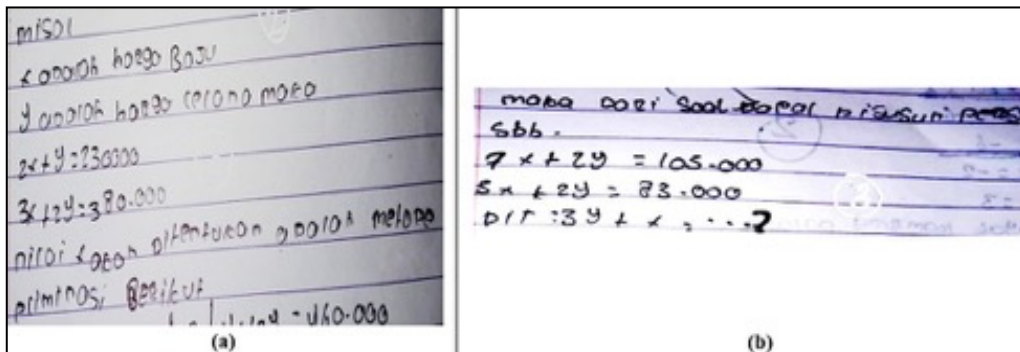 misal
x adalah harga Baju
y adalah harga celana maka
2x+y=230000
3x+2y=380.000
nilai x akan ditentukan adalah metode
eliminasi Berikut
=460.000
(a)
maka dari soal dapat disusun pers
sbb.
7x+2y=105.000
5x+2y=83.000
Dit:3y+x, ...?
(b)